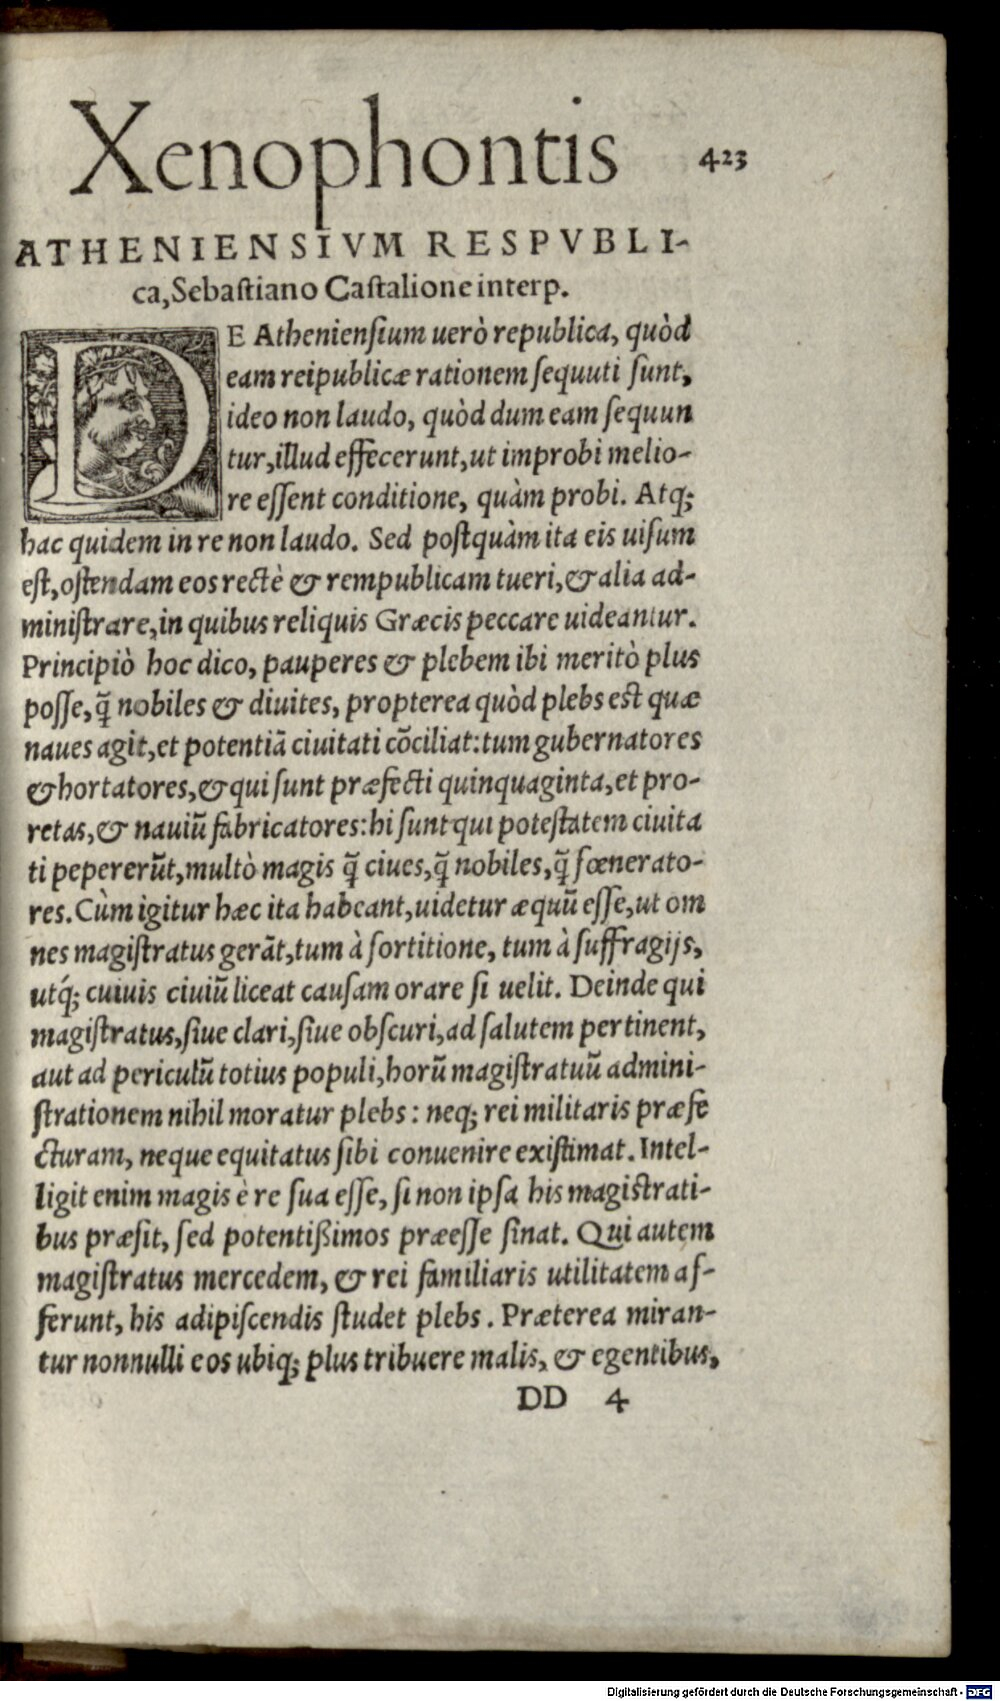 Xenophontis
423
ATHENIENSIVM RESPVBLI-
ca, Sebastiano Castalione interp.
DE Atheniensium uerò republica, quòd
eam reipublicæ rationem sequuti sunt,
ideo non laudo, quòd dum eam sequun
tur, illud effecerunt, ut improbi melio-
re essent conditione, quàm probi. Atq;
hac quidem in re non laudo. Sed postquàm ita eis uisum
est, ostendam eos rectè & rempublicam tueri, & alia ad-
ministrare, in quibus reliquis Græcis peccare uideantur.
Principiò hoc dico, pauperes & plebem ibi meritò plus
posse, q̃ nobiles & diuites, propterea quòd plebs est quæ
naues agit, et potentiā ciuitati cōciliat: tum gubernatores
& hortatores, & qui sunt præfecti quinquaginta, et pro-
retas, & nauiū fabricatores: hi sunt qui potestatem ciuita
ti pepererūt, multò magis q̃ ciues, q̃ nobiles, q̃ fœnerato-
res. Cùm igitur hæc ita habeant, uidetur æquū esse, ut om
nes magistratus gerāt, tum à sortitione, tum à suffragijs,
utq́; cuiuis ciuiū liceat causam orare si uelit. Deinde qui
magistratus, siue clari, siue obscuri, ad salutem pertinent,
aut ad periculū totius populi, horū magistratuū admini-
strationem nihil moratur plebs: neq; rei militaris præfe
cturam, neque equitatus sibi conuenire existimat. Intel-
ligit enim magis è re sua esse, si non ipsa his magistrati-
bus præsit, sed potentißimos præesse sinat. Qui autem
magistratus mercedem, & rei familiaris utilitatem af-
ferunt, his adipiscendis studet plebs. Præterea miran-
tur nonnulli eos ubiq; plus tribuere malis, & egentibus,
DD 4
Digitalisierung gefördert durch die Deutsche Forschungsgemeinschaft - DFG